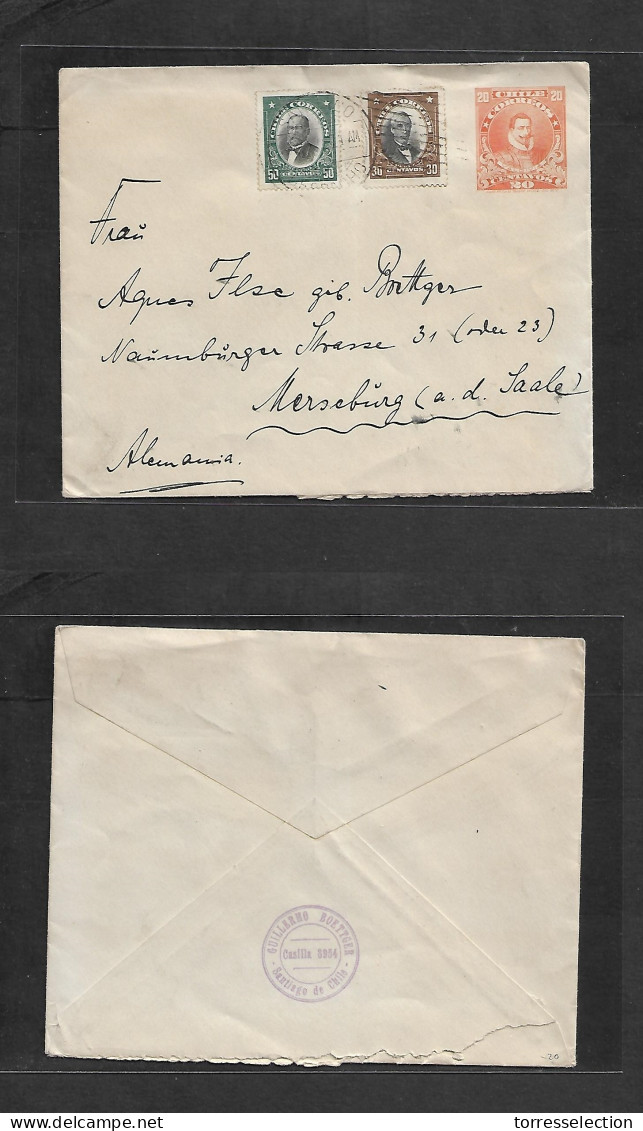 50 CHILE CORREOS 50 CENTAVOS
30 CHILE CORREOS 30 CENTAVOS
CHILE
20 CORREOS 20
CENTAVOS
20
Frau
Agnes Ilse gib. Boettger
Naumburger Strasse 31 (oder 23)
Merseburg (a. d. Saale)
Alemania.
GUILLERMO BOETTGER
Casilla 3954
Santiago de Chile
20
www.delcampe.net
torresselection